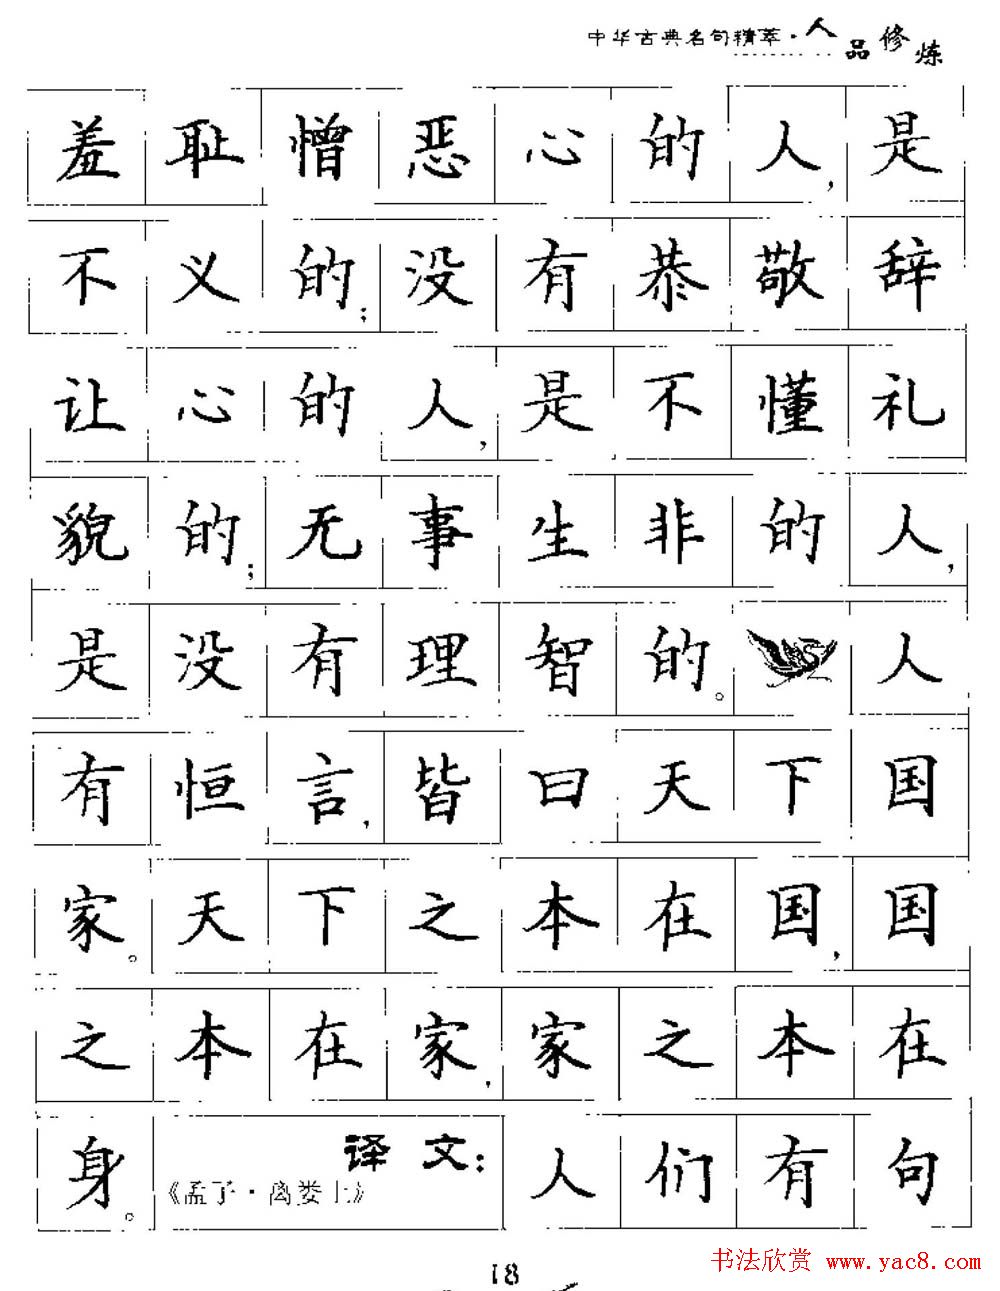 中华古典名句精萃·人品修炼
羞耻憎恶心的人，是
不义的；没有恭敬辞
让心的人，是不懂礼
貌的；无事生非的人，
是没有理智的。人
有恒言，皆曰天下国
家。天下之本在国，国
之本在家，家之本在
身。《孟子·离娄上》译文：人们有句
18
书法欣赏 www.yac8.com